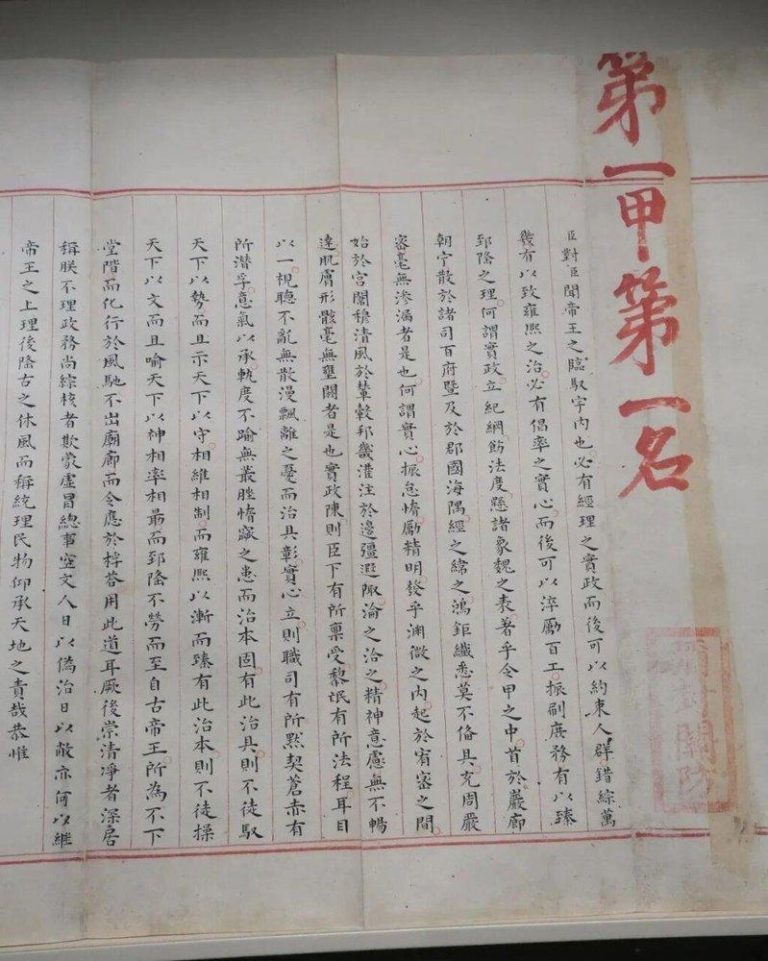 第一甲第一名
彌封關防
臣對臣聞帝王之臨馭宇內也必有經理之實政而後可以約束人群錯綜萬
幾有以致雍熙之治必有倡率之實心而後可以淬勵百工振刷庶務有以臻
郅隆之理何謂實政立紀綱飭法度懸諸象魏之表著乎令甲之中首於巖廊
朝宁散於諸司百府暨及於郡國海隅經之緯之鴻鉅纖悉莫不備具充周嚴
密毫無滲漏者是也何謂實心振怠惰勵精明發乎淵微之內起於宥密之間
始於宮闈穆清風於輦轂邦畿灌注於邊疆遐陬淪之洽之精神意慮無不暢
達肌膚形骸毫無壅閼者是也實政陳則臣下有所稟受黎氓有所法程耳目
以一視聽不亂無散漫飄離之憂而治具彰實心立則職司有所默契蒼赤有
所潛孚意氣以承軌度不踰無叢脞惰窳之患而治本固有此治具則不徒馭
天下以勢而且示天下以守相維相制而雍熙以漸而臻有此治本則不徒操
天下以文而且喻天下以神相率相勗而郅隆不勞而至自古帝王所為不下
堂階而化行於風馳不出廟廊而令應於桴答用此道耳厥後崇清凈者深居
稱朕不理政務尚綜核者欺蒙虛冒總事空文人日以偽治日以敝亦何以繼
帝王之上理後隆古之休風而稱統理民物仰承天地之責哉恭惟